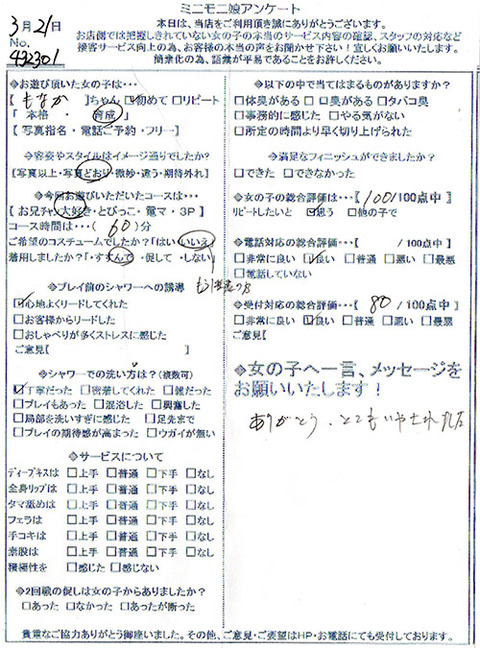 ミニモニ娘アンケート
3月21日
No.
492301
本日は、当店をご利用頂き誠にありがとうございます。
お店側では把握しきれていない女の子の本当のサービス内容の確認、スタッフの対応など
接客サービス向上の為、お客様の本当の声をお聞かせ下さい！宜しくお願いいたします。
簡素化の為、語彙が平易であることをお許しください。
◆お遊び頂いた女の子は…
【 もなか 】ちゃん ☑初めて □リピート
「 本格 ・ 育成 」
【 写真指名・電話ご予約・フリー】
◆容姿やスタイルはイメージ通りでしたか？
【写真以上・写真どおり・微妙・違う・期待外れ】
◆今回お遊びいただいたコースは…
【 お兄チャン大好き・とびっこ・電マ・3P】
コース時間は…( 60 )分
ご希望のコスチュームでしたか？「はい・いいえ」
着用しましたか？「・すすんで ・促して ・しない」
◆プレイ前のシャワーへの誘導
☑心地よくリードしてくれた
□お客様からリードした
□おしゃべりが多くストレスに感じた
ご意見【 】
◆シャワーでの洗い方は？(複数可)
☑丁寧だった □密着してくれた □雑だった
□プレイもあった □混浴した □興奮した
□局部を洗いすぎに感じた □足先まで
□プレイの期待感が高まった □ウガイが無い
◆サービスについて
ディープキスは □上手 □普通 □下手 □なし
全身リップは □上手 □普通 □下手 □なし
タマ舐めは □上手 □普通 □下手 □なし
フェラは □上手 □普通 □下手 □なし
手コキは □上手 □普通 □下手 □なし
素股は □上手 □普通 □下手 □なし
積極性を □感じた □感じない
◆2回戦の促しは女の子からありましたか？
□あった □なかった □あったが断った
◆以下の中で当てはまるものがありますか？
□体臭がある □口臭がある □タバコ臭
□事務的に感じた □やる気がない
□所定の時間より早く切り上げられた
◆満足なフィニッシュができましたか？
□できた □できなかった
◆女の子の総合評価は…【 100 /100点中】
リピートしたいと ☑思う □他の子で
◆電話対応の総合評価… /100点中】
□非常に良い ☑良い □普通 □悪い □最悪
□電話していない
◆受付対応の総合評価…【 80 /100点中】
□非常に良い ☑良い □普通 □悪い □最悪
ご意見【 】
◆女の子へ一言、メッセージを
お願いいたします！
ありがとう、とてもいやされた
貴重なご協力ありがとう御座いました。その他、ご意見・ご要望はHP・お電話にても受付しております。